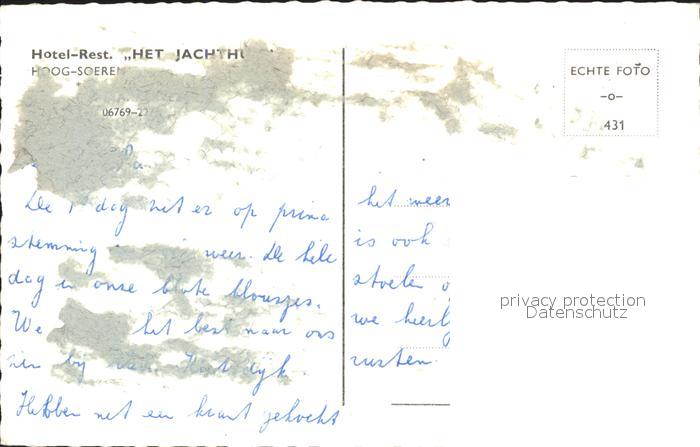 Hotel-Rest. „HET JACHTHU
HOOG-SOEREN
06769-2
Pa
De 1 dag zit er op prima
stemming weer. De hele
dag in onze blote blousjes.
We het best naar ons
zin by
Hebben net een krant gekocht
het weer
is ook
stoelen
we heerl
rusten.
ECHTE FOTO
-o-
431
privacy protection
Datenschutz